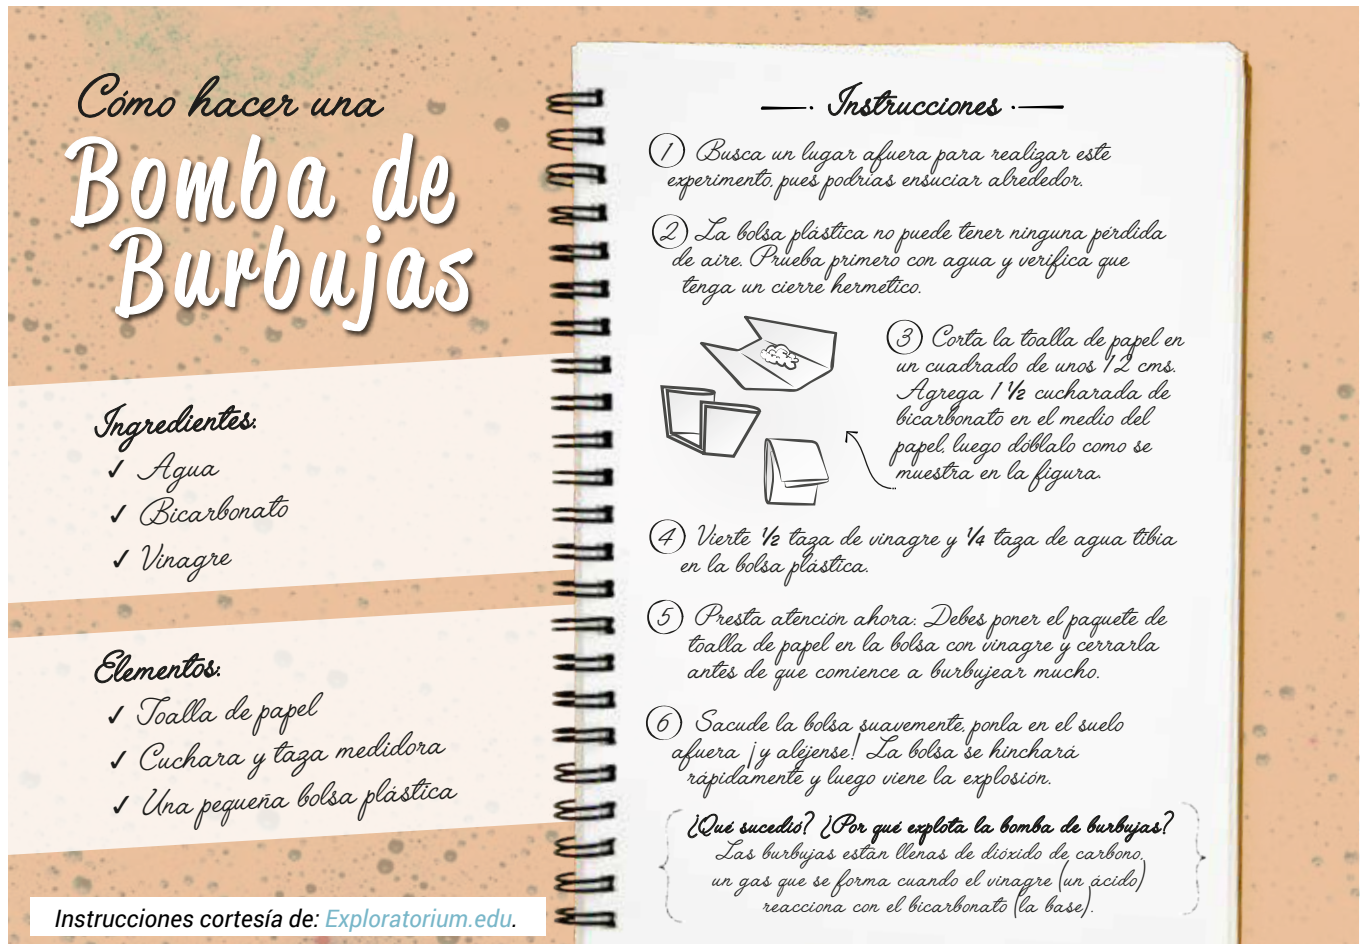 Cómo hacer una
Bomba de
Burbujas
Ingredientes:
✓ Agua
✓ Bicarbonato
✓ Vinagre
Elementos:
✓ Toalla de papel
✓ Cuchara y taza medidora
✓ Una pequeña bolsa plástica
Instrucciones cortesía de: Exploratorium.edu.
Instrucciones
1 Busca un lugar afuera para realizar este
experimento, pues podrías ensuciar alrededor.
2 La bolsa plástica no puede tener ninguna pérdida
de aire. Prueba primero con agua y verifica que
tenga un cierre hermético.
3 Corta la toalla de papel en
un cuadrado de unos 12 cms.
Agrega 1 ½ cucharada de
bicarbonato en el medio del
papel, luego dóblalo como se
muestra en la figura.
4 Vierte ½ taza de vinagre y ¼ taza de agua tibia
en la bolsa plástica.
5 Presta atención ahora: Debes poner el paquete de
toalla de papel en la bolsa con vinagre y cerrarla
antes de que comience a burbujear mucho.
6 Sacude la bolsa suavemente, ponla en el suelo
afuera ¡y aléjense! La bolsa se hinchará
rápidamente y luego viene la explosión.
¿Qué sucedió? ¿Por qué explota la bomba de burbujas?
Las burbujas están llenas de dióxido de carbono,
un gas que se forma cuando el vinagre (un ácido)
reacciona con el bicarbonato (la base).